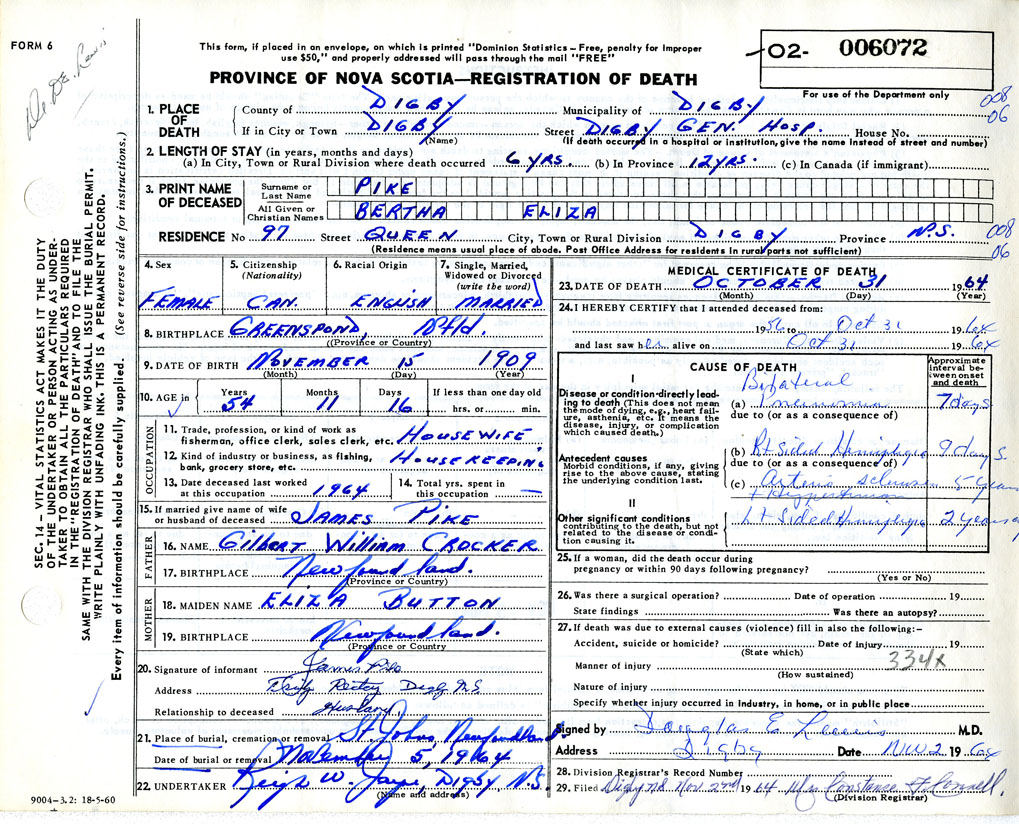 FORM 6
Dr. D.E. Lewis
This form, if placed in an envelope, on which is printed "Dominion Statistics – Free, penalty for improper
use $50," and properly addressed will pass through the mail "FREE"
PROVINCE OF NOVA SCOTIA—REGISTRATION OF DEATH
02- 006072
For use of the Department only
008
06
1. PLACE OF DEATH
County of DIGBY Municipality of DIGBY
If in City or Town DIGBY Street DIGBY GEN. HOSP. House No.
(Name) (If death occurred in a hospital or institution, give the name instead of street and number)
2. LENGTH OF STAY (in years, months and days)
(a) In City, Town or Rural Division where death occurred 6 YRS. (b) In Province 12 YRS. (c) In Canada (if immigrant)
3. PRINT NAME OF DECEASED
Surname or Last Name PIKE
All Given or Christian Names BERTHA ELIZA
RESIDENCE No 97 Street QUEEN City, Town or Rural Division DIGBY Province N.S.
008
06
(Residence means usual place of abode. Post Office Address for residents in rural parts not sufficient)
4. Sex
FEMALE
5. Citizenship (Nationality)
CAN.
6. Racial Origin
ENGLISH
7. Single, Married, Widowed or Divorced (write the word)
MARRIED
8. BIRTHPLACE GREENSPOND, Nfld.
(Province or Country)
9. DATE OF BIRTH NOVEMBER 15 1909
(Month) (Day) (Year)
10. AGE in Years Months Days If less than one day old
54 11 16 hrs. or min.
OCCUPATION
11. Trade, profession, or kind of work as
fisherman, office clerk, sales clerk, etc. HOUSEWIFE
12. Kind of industry or business, as fishing,
bank, grocery store, etc. HOUSEKEEPING
13. Date deceased last worked
at this occupation 1964
14. Total yrs. spent in
this occupation —
15. If married give name of wife
or husband of deceased JAMES PIKE
FATHER
16. NAME Gilbert William CROCKER
17. BIRTHPLACE Newfoundland.
(Province or Country)
MOTHER
18. MAIDEN NAME ELIZA BUTTON
19. BIRTHPLACE Newfoundland.
(Province or Country
20. Signature of informant James Pike
Address Digby NS
Relationship to deceased Husband
21. Place of burial, cremation or removal St Johns Newfoundland.
Date of burial or removal November 5, 1964
22. UNDERTAKER W. Digby N.S.
(Name and address)
9004–3.2: 18-5-60
MEDICAL CERTIFICATE OF DEATH
23. DATE OF DEATH OCTOBER 31 1964
(Month) (Day) (Year)
24. I HEREBY CERTIFY that I attended deceased from:
1956 to Oct 31 1964
and last saw her alive on Oct 31 1964
CAUSE OF DEATH
Approximate interval between onset and death
I
Disease or condition directly leading to death (This does not mean the mode of dying, e.g., heart failure, asthenia, etc. It means the disease, injury, or complication which caused death.)
(a) Bilateral pneumonia 7 days
due to (or as a consequence of)
Antecedent causes
Morbid conditions, if any, giving rise to the above cause, stating the underlying condition last.
(b) Rt sided Hemiplegia 9 days.
due to (or as a consequence of)
(c) Arterio sclerosis 5 years
+ Hypertension
II
Other significant conditions
contributing to the death, but not related to the disease or condition causing it.
Lt Sided Hemiplegia 2 years
25. If a woman, did the death occur during
pregnancy or within 90 days following pregnancy?
(Yes or No)
26. Was there a surgical operation? Date of operation 19
State findings Was there an autopsy?
27. If death was due to external causes (violence) fill in also the following:–
Accident, suicide or homicide? Date of injury 19
(State which)
334x
Manner of injury
(How sustained)
Nature of injury
Specify whether injury occurred in industry, in home, or in public place
Signed by Douglas E Lewis M.D.
Address Digby Date Nov. 2 1964
28. Division Registrar's Record Number
29. Filed Digby NS. Nov. 2nd 1964 Mrs Constance
(Division Registrar)
SEC. 14 – VITAL STATISTICS ACT MAKES IT THE DUTY
OF THE UNDERTAKER OR PERSON ACTING AS UNDER-
TAKER TO OBTAIN ALL THE PARTICULARS REQUIRED
IN THE "REGISTRATION OF DEATH" AND TO FILE THE
SAME WITH THE DIVISION REGISTRAR WHO SHALL ISSUE THE BURIAL PERMIT.
WRITE PLAINLY WITH UNFADING INK. THIS IS A PERMANENT RECORD.
Every item of information should be carefully supplied. (See reverse side for instructions.)